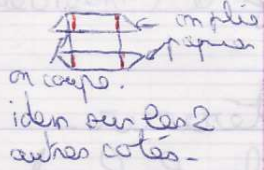 on plie
papier
on coupe.
idem sur les 2
autres cotés.